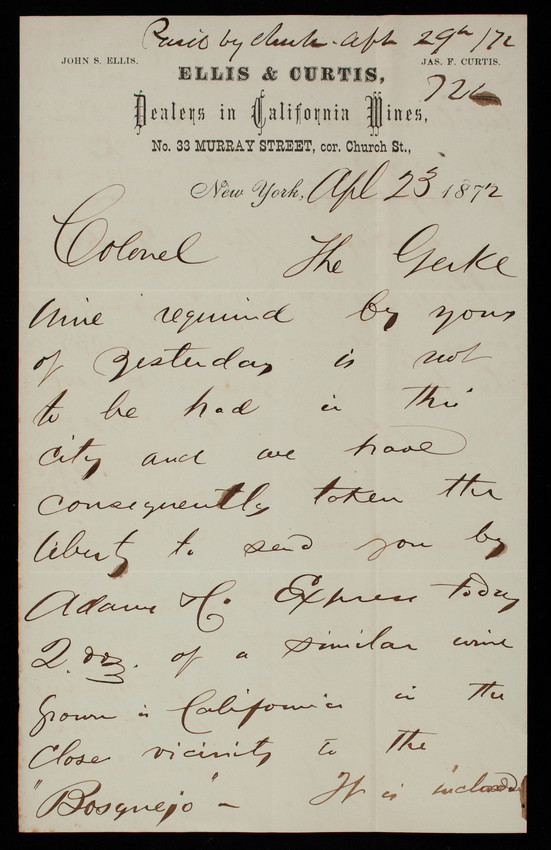 Paid by check Apl 29th /72
JOHN S. ELLIS. JAS. F. CURTIS.
ELLIS & CURTIS,
Dealers in California Wines,
No. 33 MURRAY STREET, cor. Church St.,
New York, Apl 23 1872
Colonel The Gerke
Wine required by yours
of yesterday is not
to be had in this
city and we have
consequently taken the
liberty to send you by
Adams & Co Express today
2. doz. of a similar wine
grown in California in the
close vicinity to the
"Bosquejo" – It is included